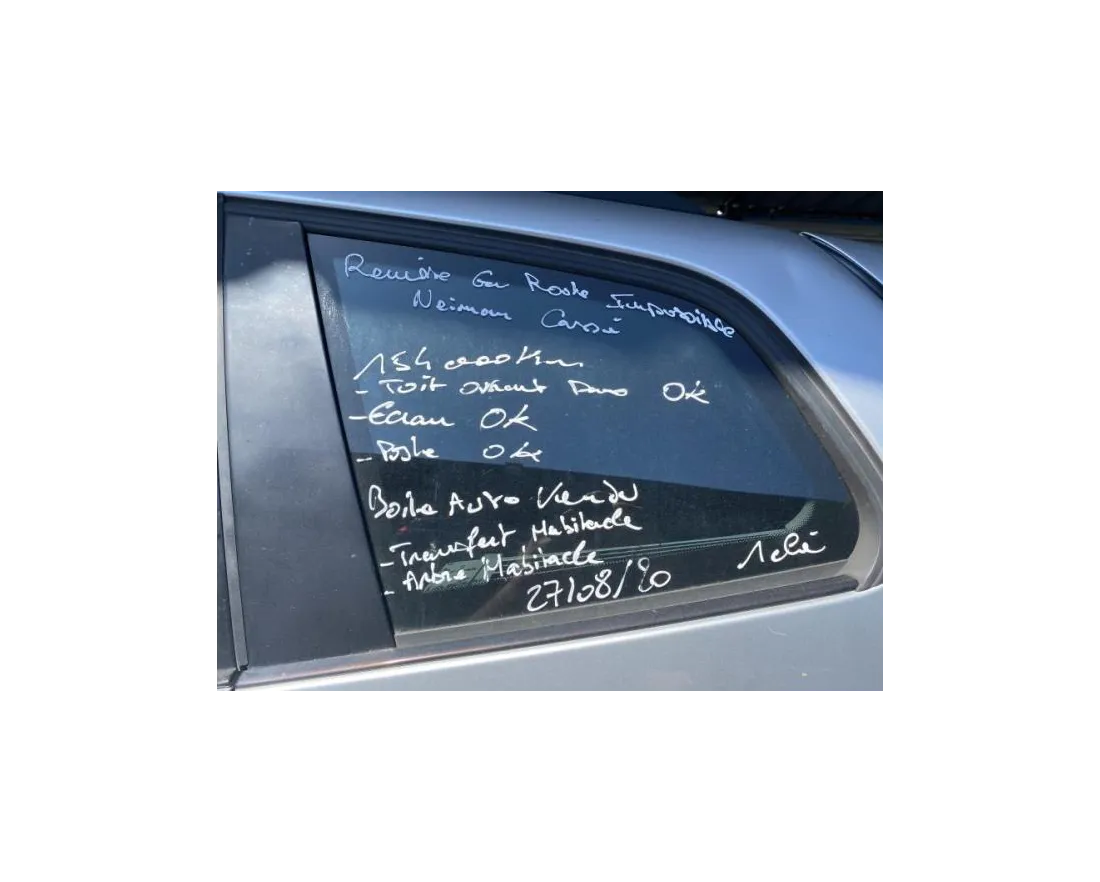 Remise En Route Impossible
Neiman Cassé
154 000 Km
- Toit ouvrant Pano OK
- Ecran OK
- Poste OK
Boite Auto Vendu
- Transfert Habitacle
- Arbre Habitacle
1 clé
27/08/20